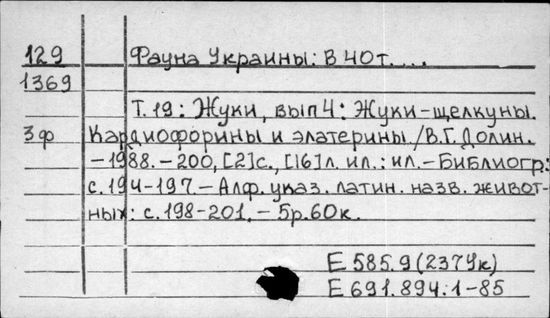 129 Фауна Украины: В 40т....
1369
Т.19: Жуки, вып 4: Жуки-щелкуны.
3ф Кардиофорины и элатерины./В.Г.Долин.
-1988.-200,[2]с.,[16]л. ил.: ил.-Библиогр:
с.194-197.-Алф. указ. латин. назв. живот-
ных: с.198-201.-5р.60к.
Е 585.9(2379к)
Е 691.894:1-85